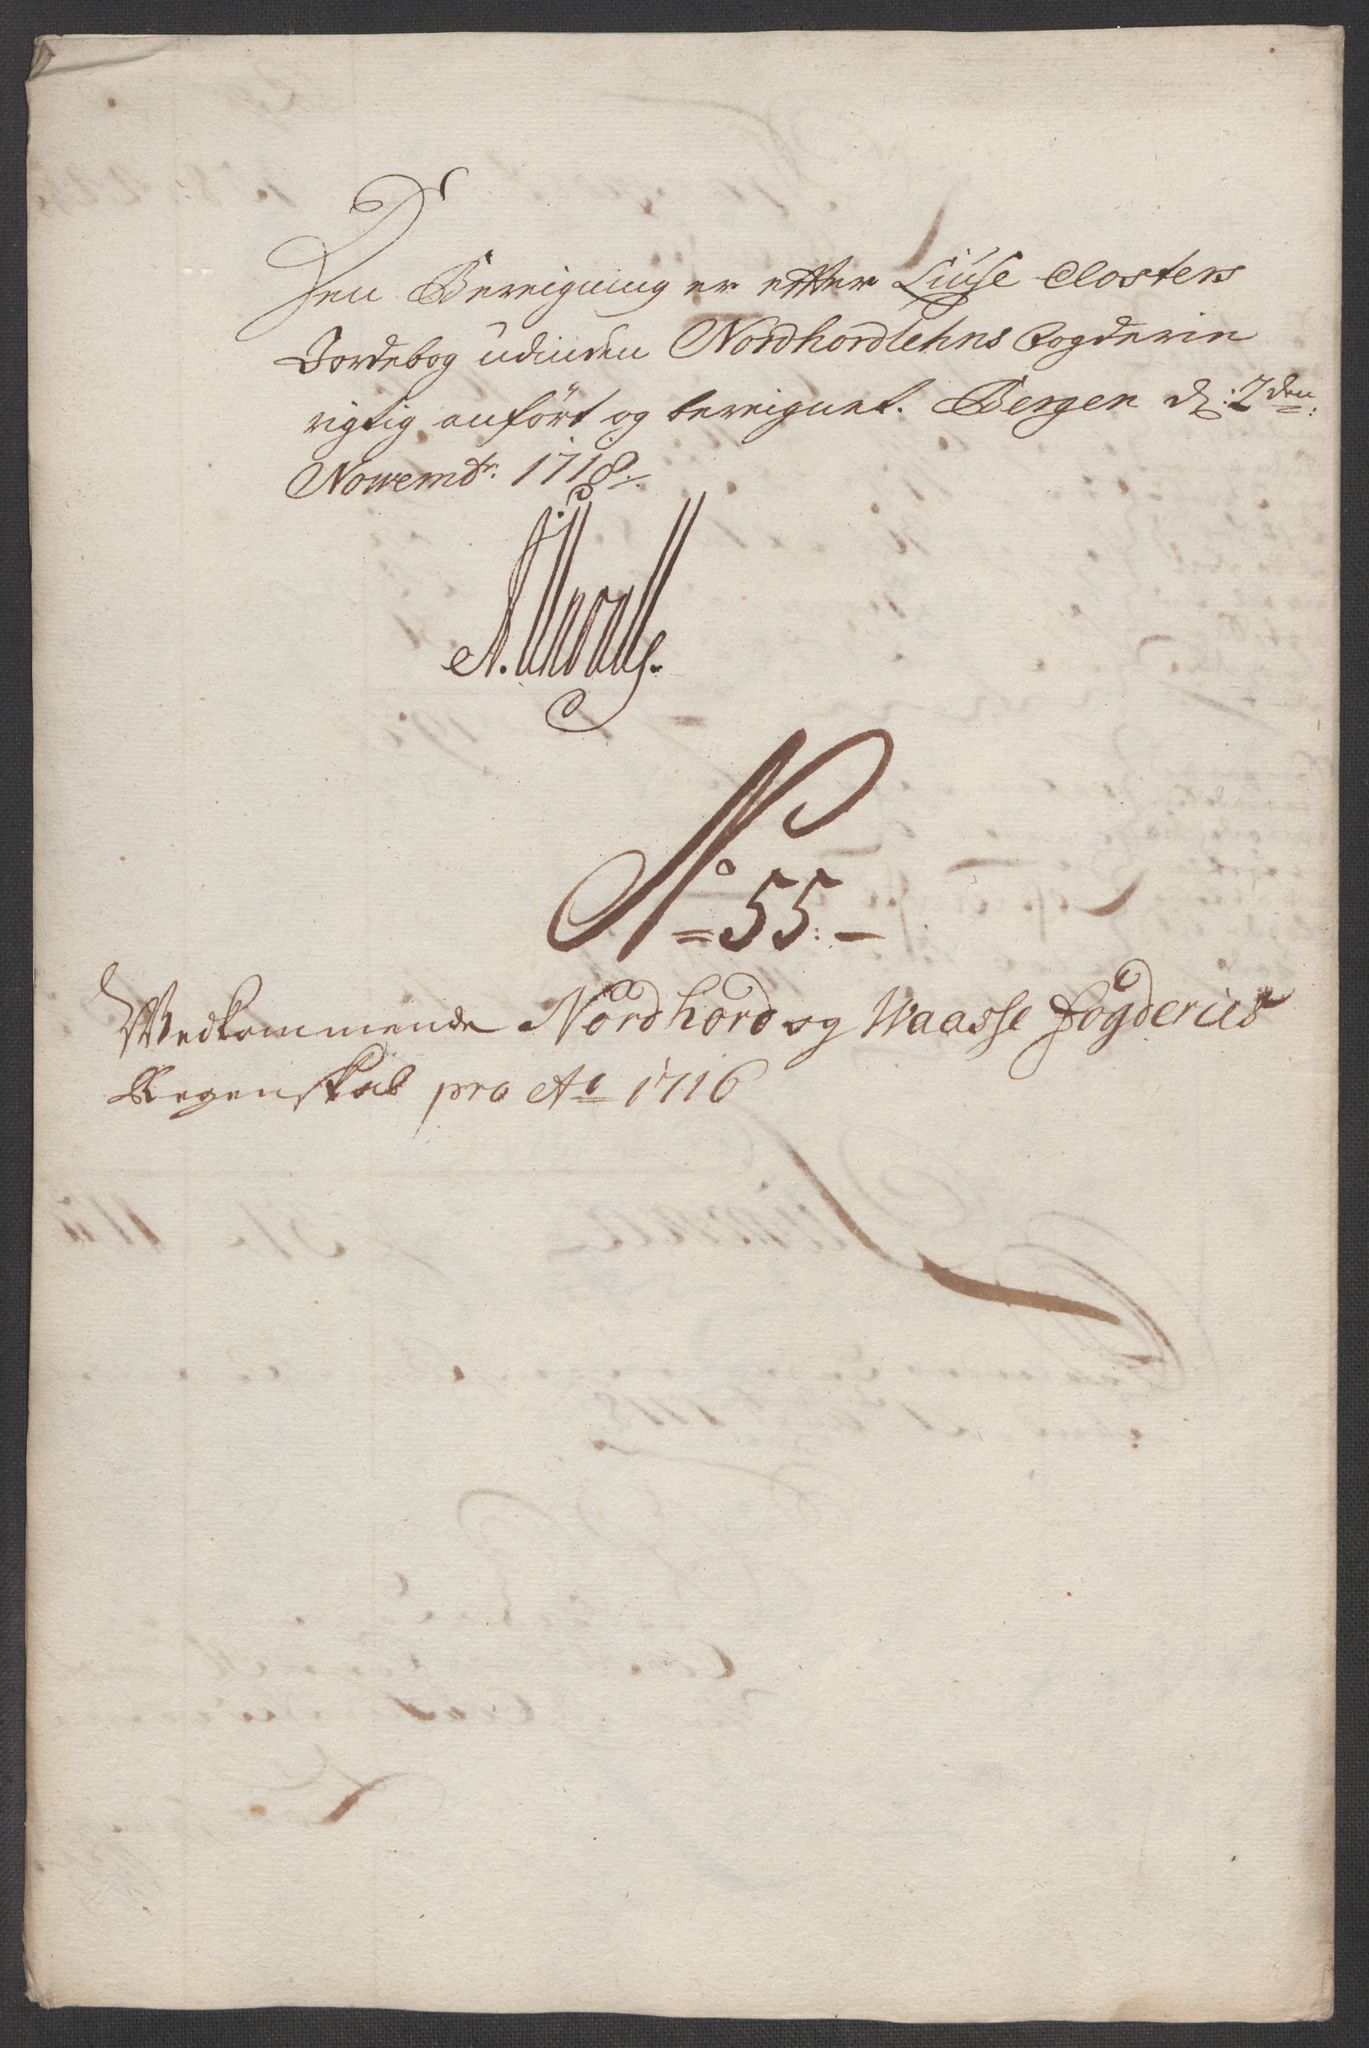 Den Bereigning er etter Liuse Closters
Jordebog udinden Nordhordlehns Fogderie
rigtig anført og bereignet. Bergen d: 2den:
Novembr: 1718.
No. 55.
Wedkommende Nordhord og Waasse Fogderies
Regenskab pro Ao 1716